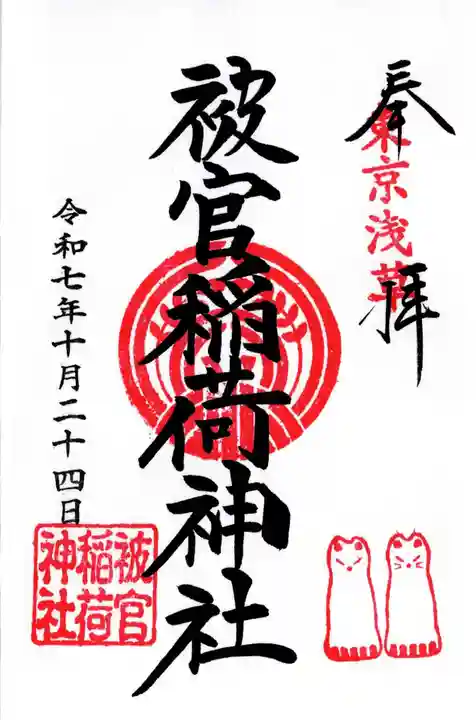 奉拝
東京浅草
被官稲荷神社
令和七年十月二十四日
被官
稲荷
神社